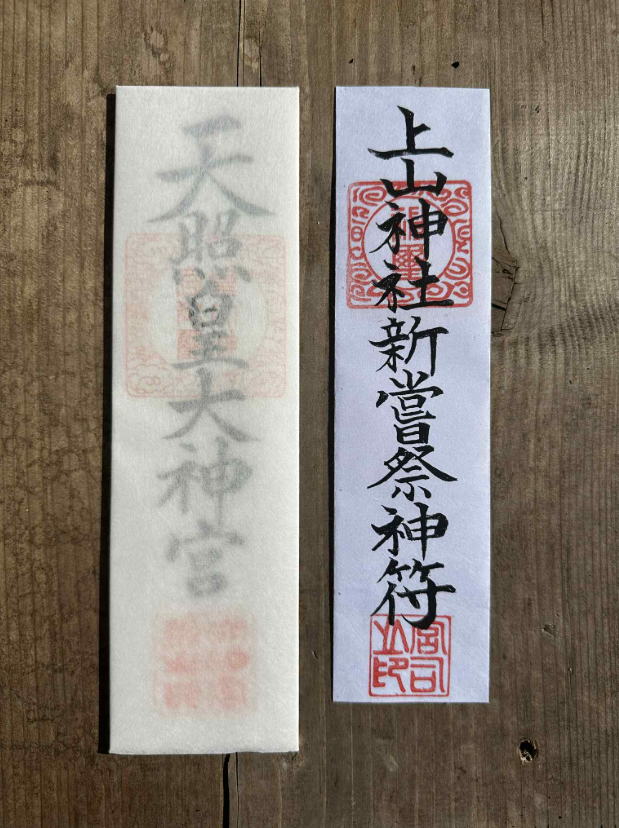 天照皇大神宮
上山神社新嘗祭神符
宮司
之印